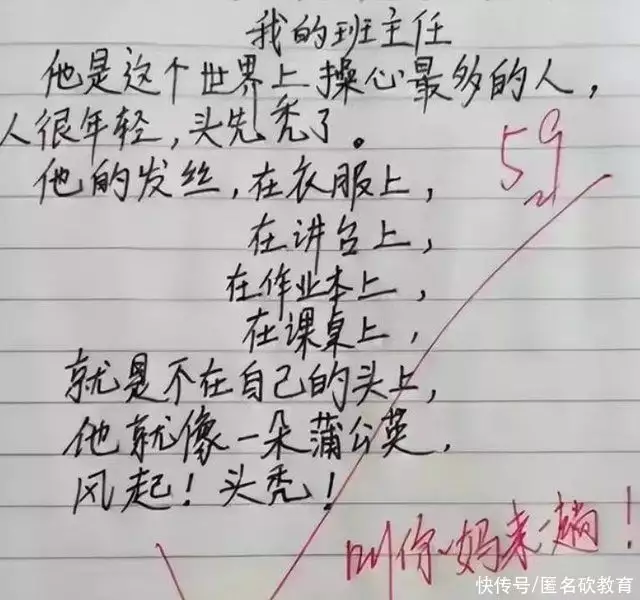 我的班主任
他是这个世界上操心最多的人，
人很年轻，头先秃了。
他的发丝，在衣服上，
在讲台上，
在作业本上，
在课桌上，
就是不在自己的头上，
他就像一朵蒲公英，
风起！头秃！
59
叫你妈来一趟！
快传号/匿名砍教育